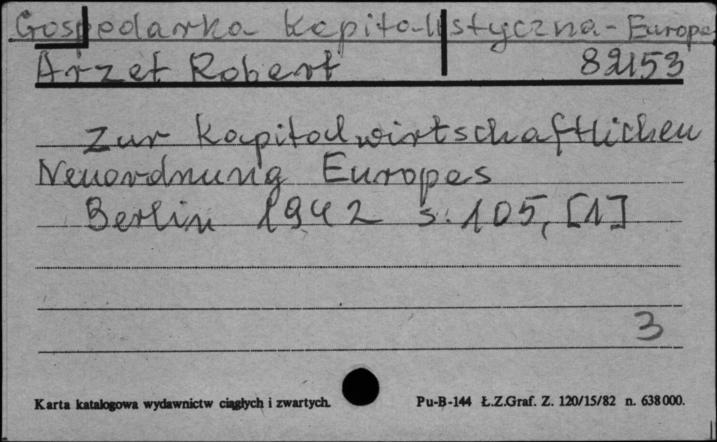 Gospodarka kapitalistyczna - Europa
Arzet Robert 82153
Zur Kapitalwirtschaftlichen
Neuordnung Europas
Berlin 1942 s. 105, [1]
3
Karta katalogowa wydawnictw ciągłych i zwartych. Pu-B-144 Ł.Z.Graf. Z. 120/15/82 n. 638000.